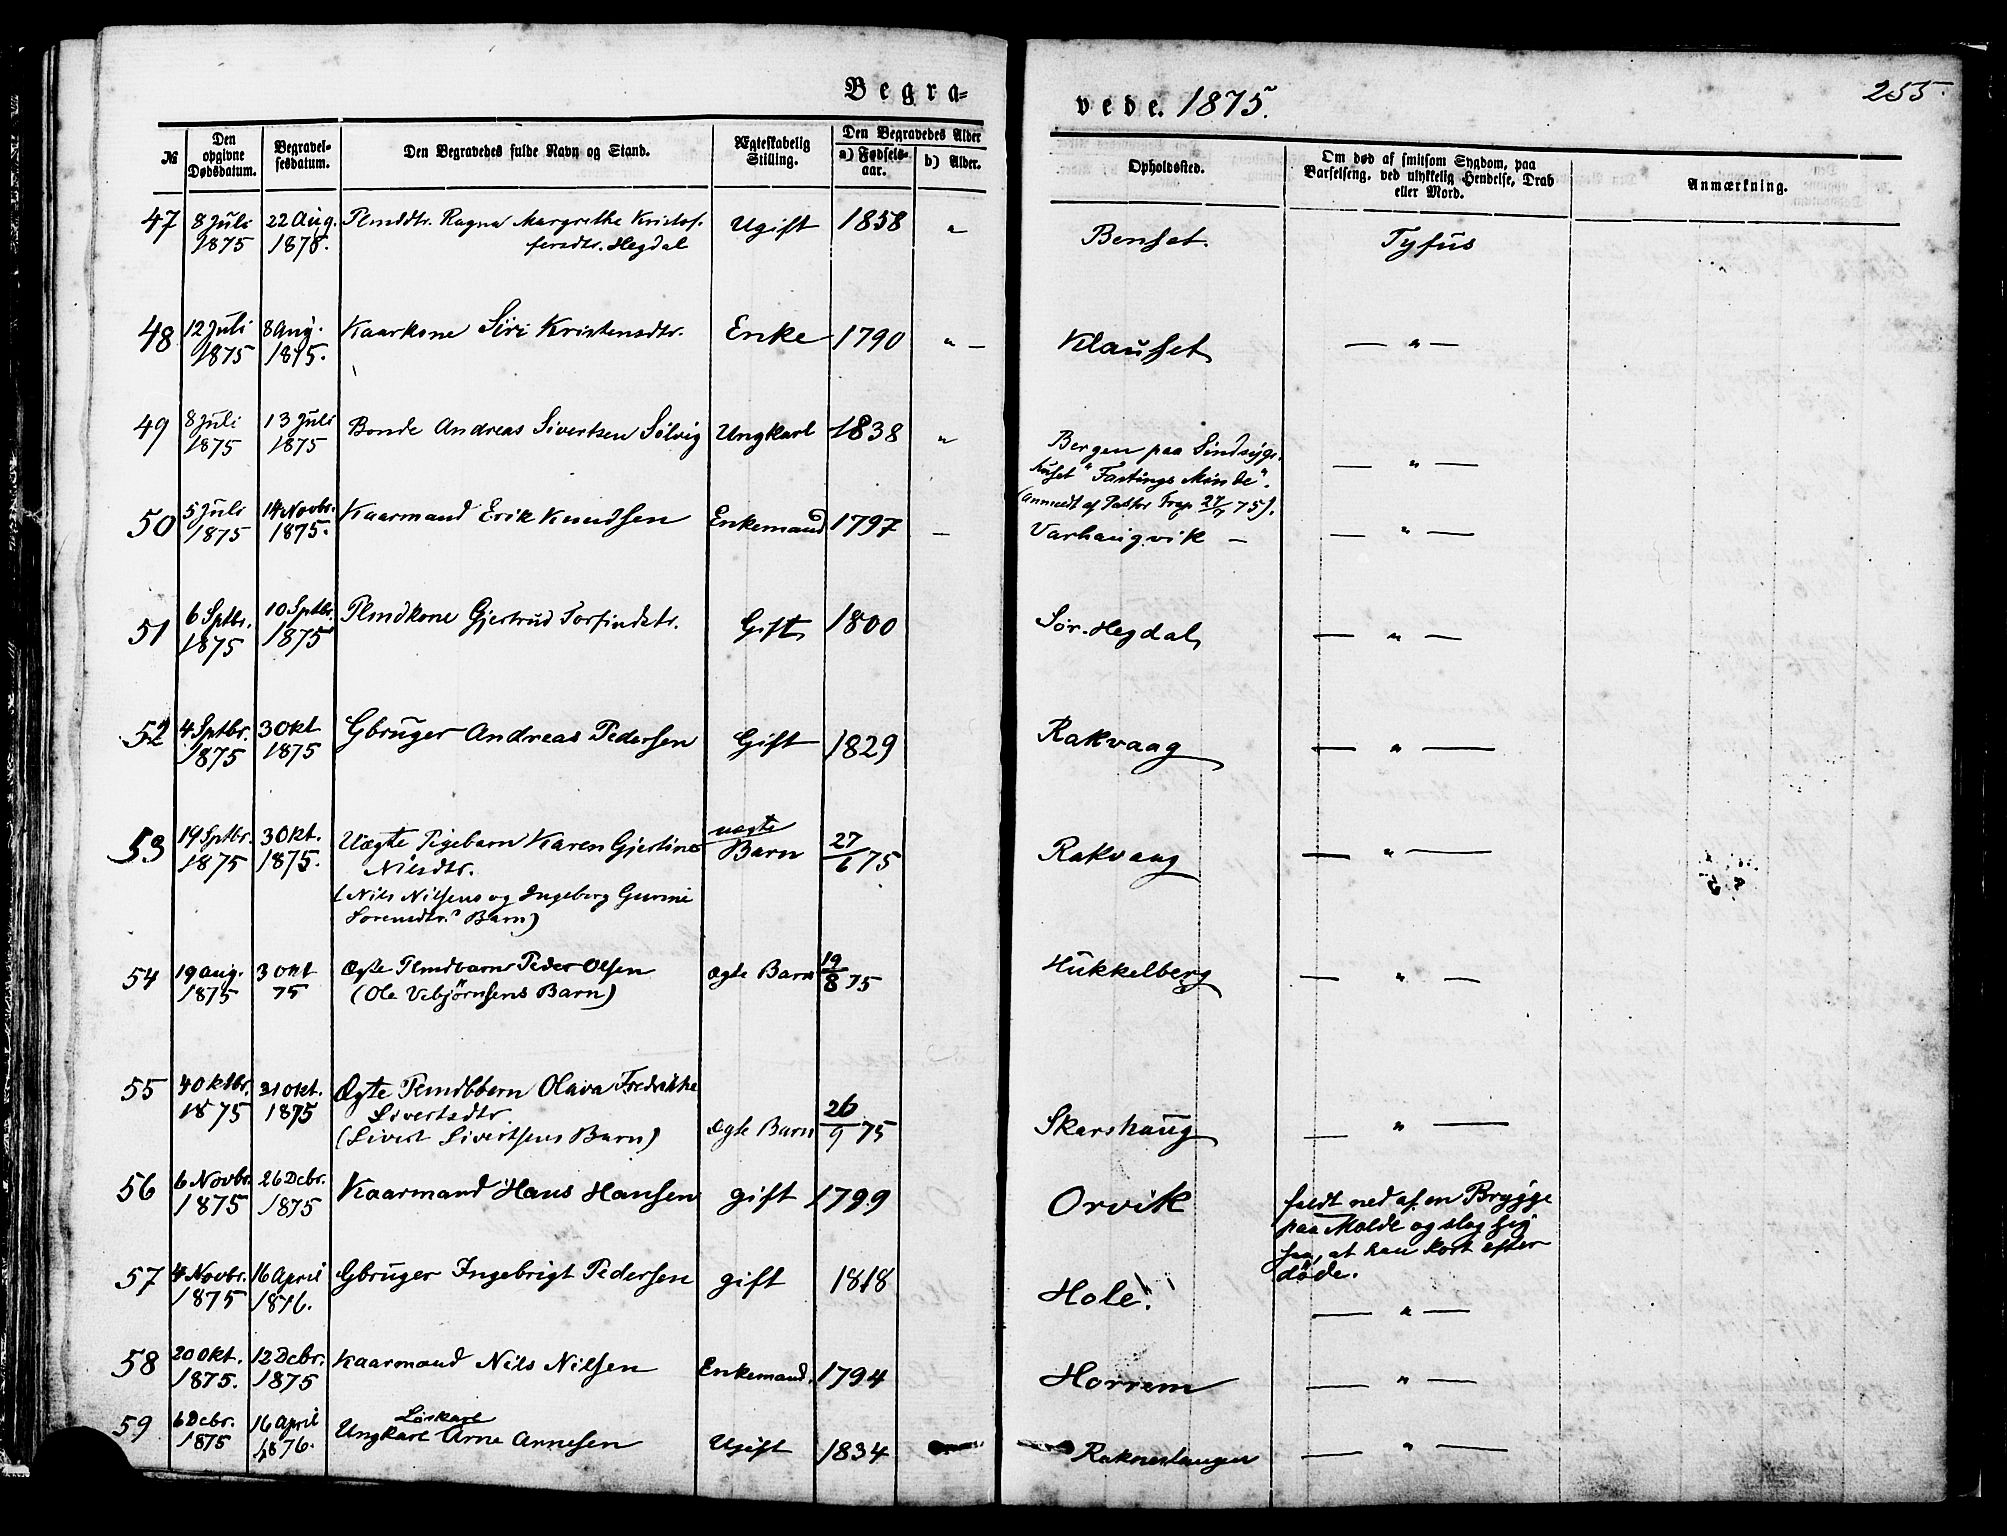 Begra=
vede. 1875.
255.
№
Den opgivne Dødsdatum.
Begravelsesdatum.
Den Begravedes fulde Navn og Stand.
Ægteskabelig Stilling.
Den Begravedes Alder
a) Fødselsaar.
b) Alder.
Opholdssted.
Om død af smitsom Sygdom, paa Barselseng, ved ulykkelig Hendelse, Drab eller Mord.
Anmærkning.
47 8 Juli 22 Aug. Plmddtr. Ragna Margrethe Kristof- Ugift 1858 " Benset. Tyfus
1875 1875. fersdtr. Hegdal
48 12 Juli 8 Aug. Kaarkone Siri Kristensdtr. Enke 1790 " — Klauset — " —
1875 1875.
49 8 Juli 13 Juli Bonde Andreas Sivertsen Sølvig Ungkarl 1838 " Bergen paa Sindsyge- — " —
1875 1875 huset "Fastings Minde".
(anmeldt af Pastor 27/7 75).
50 5 Juli 14 Novbr. Kaarmand Erik Knudsen Enkemand 1797 — Varhaugvik — — " —
1875 1875.
51 6 Sptbr. 10 Sptbr. Plmdkone Gjertrud Torfindsdtr. Gift 1800 Sør-Hegdal — " —
1875 1875
52 4 Sptbr. 3 Okt Gbruger Andreas Pedersen Gift 1829 Rakvaag — " —
1875 1875
53 19 Sptbr. 3 Okt. Uægte Pigebarn Karen Gjertine uægte Barn 27/6 75 Rakvaag — " —
1875 1875. Nilsdtr.
(Nils Nilsens og Ingeborg Gurine
Sørensdtr.s Barn)
54 19 Aug. 3 Okt Ægte Plmdbarn Peder Olsen Ægte Barn 19/8 75 Hukkelberg — " —
1875 75 (Ole Vebjørnsens Barn)
55 4 Oktbr. 31 Okt. Ægte Plmdbbern Olava Fredrikke
1875 1875 Sivertsdtr.
(Sivert Sivertsens Barn) Ægte Barn 26/9 75 Skarshaug — " —
56 6 Novbr. 26 Debr. Kaarmand Hans Hansen gift 1799 Orvik faldt ned af en Brygge
1875 1875 paa Molde og slog sig
saa, at han kort efter
døde.
57 4 Novbr. 16 April Gbruger Ingebrigt Pedersen gift 1818 Hole. — " —
1875 1876.
58 20 Okt. 12 Debr. Kaarmand Nils Nilsen Enkemand. 1794 Horrem — " —
1875. 1875
59 6 Debr. 16 April Løskarl
1875 1876. Ungkarl Arne Arnesen Ugift 1834 Raknestangen — " —